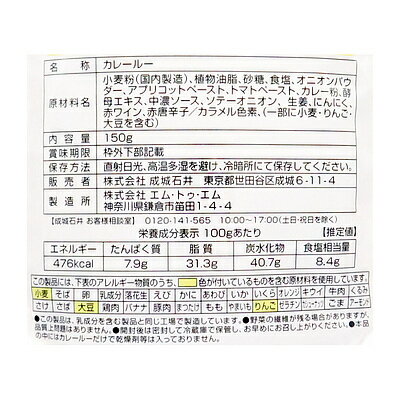 名 称 カレールー
原材料名 小麦粉(国内製造)、植物油脂、砂糖、食塩、オニオンパウ
ダー、アプリコットペースト、トマトペースト、カレー粉、酵
母エキス、中濃ソース、ソテーオニオン、生姜、にんにく、
赤ワイン、赤唐辛子/カラメル色素、(一部に小麦・りんご・
大豆を含む)
内容量 150g
賞味期限 枠外下部記載
保存方法 直射日光、高温多湿を避け、冷暗所にて保存してください。
販売者 株式会社 成城石井 東京都世田谷区成城6-11-4
製造所 株式会社 エム・トゥ・エム
神奈川県鎌倉市苗田1-4-4
【成城石井 お客様相談室】 0120-141-565 10:00〜17:00(土日・祝日を除く)
栄養成分表示 100gあたり 【推定値】
エネルギー たんぱく質 脂質 炭水化物 食塩相当量
476kcal 7.9g 31.3g 40.7g 8.4g
この製品には、下表のアレルギー物質のうち、 色が付いているものを含む原材料を使用しています。
小麦 そば 卵 乳成分 落花生 えび かに あわび いか いくら オレンジ キウイ 牛肉 くるみ
さけ さば 大豆 鶏肉 バナナ 豚肉 まつたけ もも やまいも りんご ゼラチン カシューナッツ ごま アーモンド
●この製品は、乳成分を含む製品と同じ工場で製造しています。●野菜の繊維が残る場合がありますが、
品質上問題はありません。●開封後は密封して冷蔵庫で保管し、お早めにお召し上がりください。●本品
の中にはカレールーだけで乾燥剤等は入っておりません。